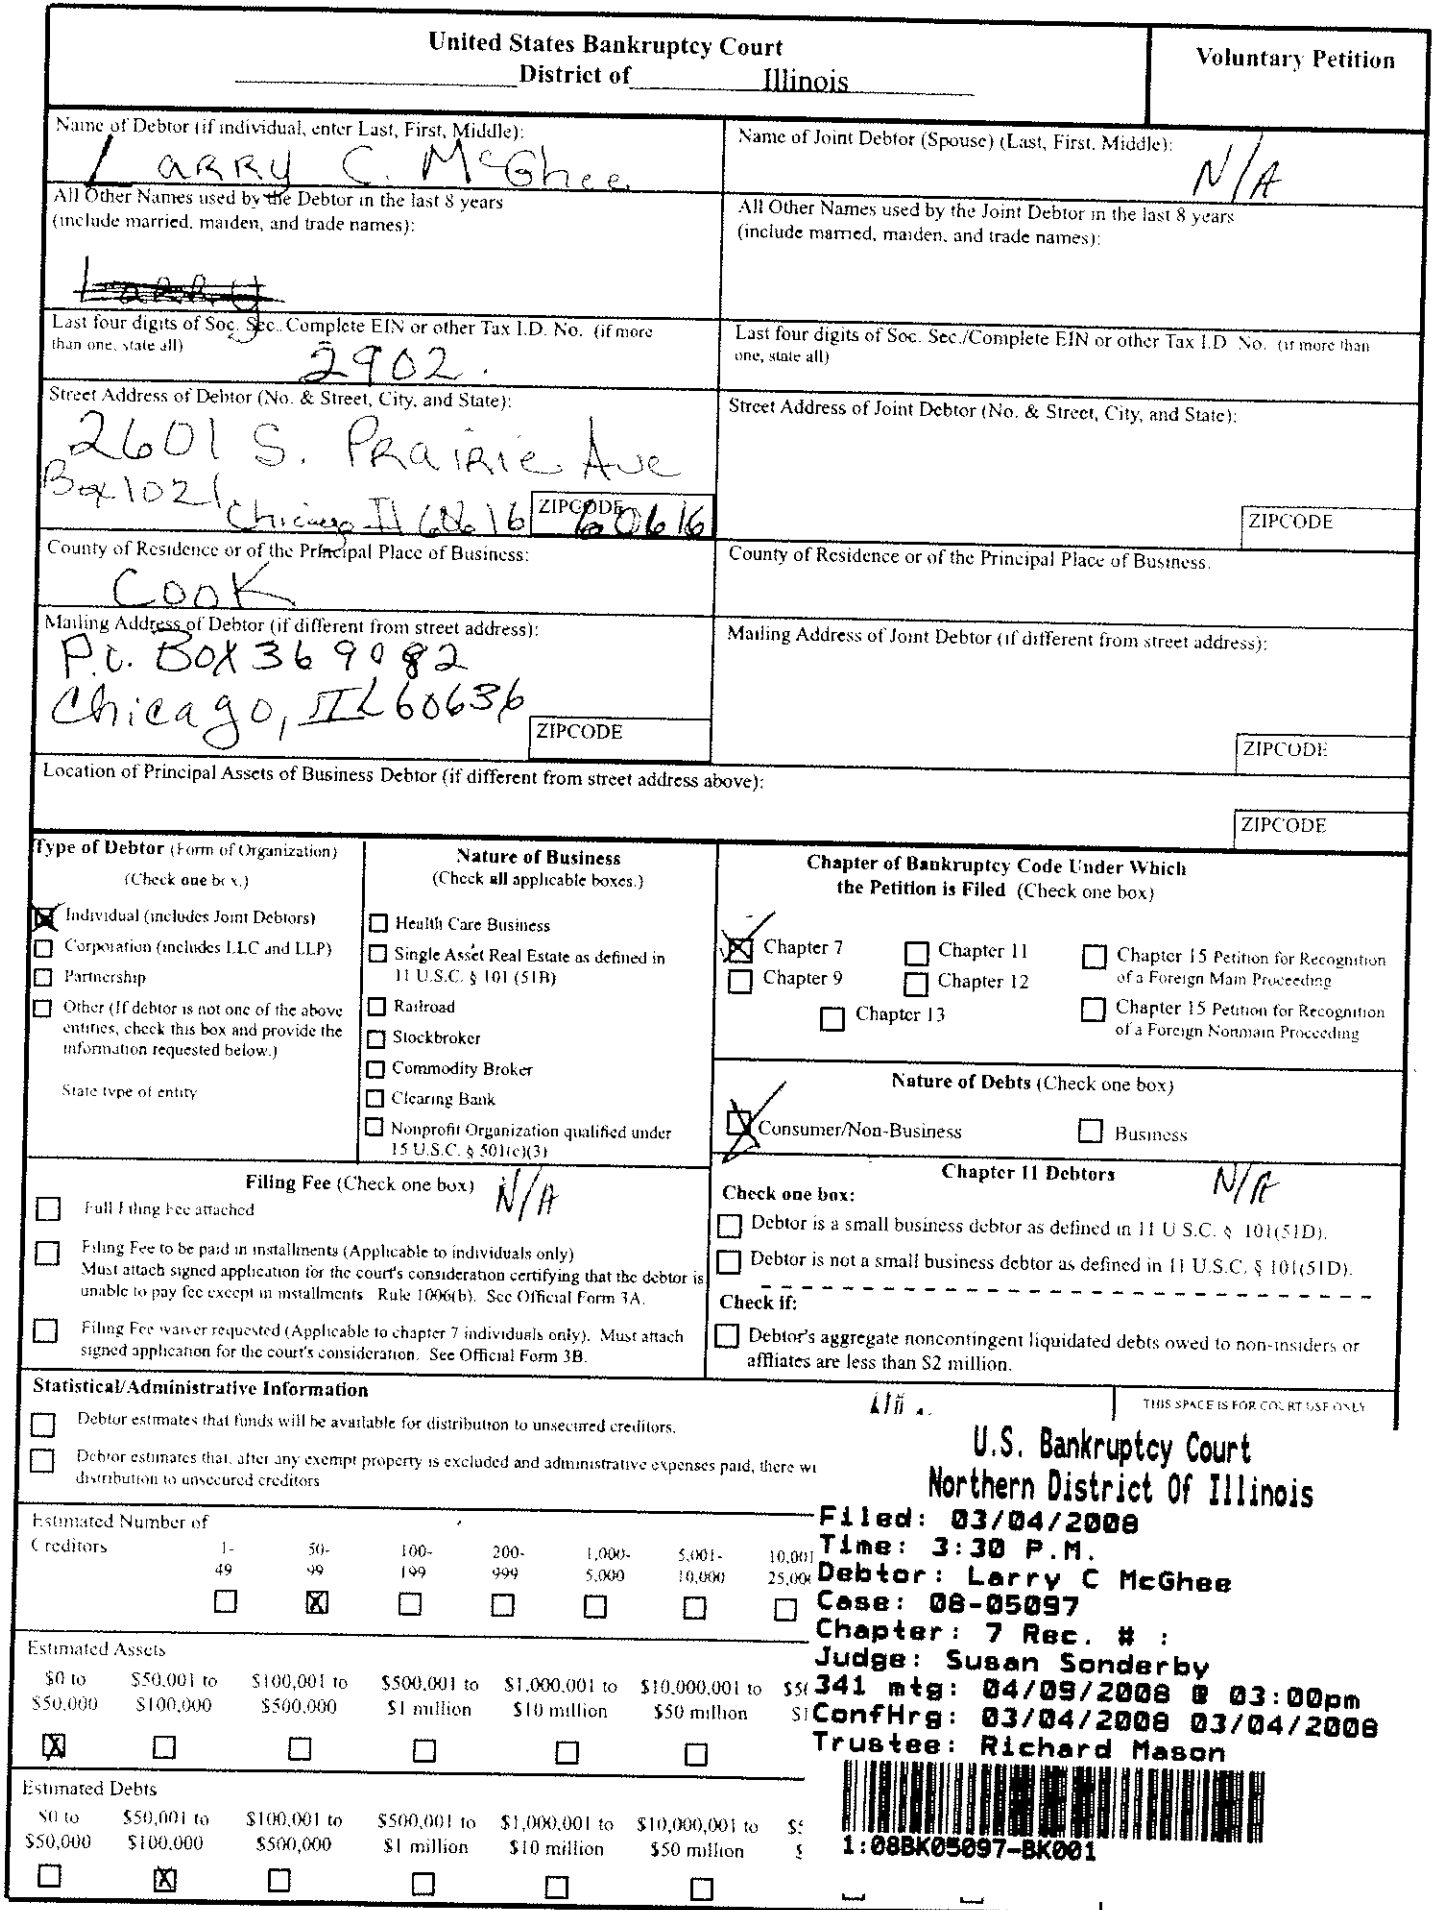 United States Bankruptcy Court
District of Illinois
Voluntary Petition
Name of Debtor (if individual, enter Last, First, Middle):
Larry C. McGhee
Name of Joint Debtor (Spouse) (Last, First, Middle):
N/A
All Other Names used by the Debtor in the last 8 years
(include married, maiden, and trade names):
Larry
All Other Names used by the Joint Debtor in the last 8 years
(include married, maiden, and trade names):
Last four digits of Soc. Sec. Complete EIN or other Tax I.D. No. (if more
than one, state all)
2902.
Last four digits of Soc. Sec./Complete EIN or other Tax I.D. No. (if more than
one, state all)
Street Address of Debtor (No. & Street, City, and State):
2601 S. Prairie Ave
Box 1021
Chicago Il 60616
ZIPCODE 60616
Street Address of Joint Debtor (No. & Street, City, and State):
ZIPCODE
County of Residence or of the Principal Place of Business:
Cook
County of Residence or of the Principal Place of Business.
Mailing Address of Debtor (if different from street address):
P.O. Box 369082
Chicago, IL 60636
ZIPCODE
Mailing Address of Joint Debtor (if different from street address):
ZIPCODE
Location of Principal Assets of Business Debtor (if different from street address above):
ZIPCODE
Type of Debtor (Form of Organization)
(Check one box.)
Individual (includes Joint Debtors)
Corporation (includes LLC and LLP)
Partnership
Other (If debtor is not one of the above
entities, check this box and provide the
information requested below.)
State type of entity
Nature of Business
(Check all applicable boxes.)
Health Care Business
Single Asset Real Estate as defined in
11 U.S.C. § 101 (51B)
Railroad
Stockbroker
Commodity Broker
Clearing Bank
Nonprofit Organization qualified under
15 U.S.C. § 501(c)(3)
Chapter of Bankruptcy Code Under Which
the Petition is Filed (Check one box)
Chapter 7 Chapter 11 Chapter 15 Petition for Recognition
of a Foreign Main Proceeding
Chapter 9 Chapter 12
Chapter 13 Chapter 15 Petition for Recognition
of a Foreign Nonmain Proceeding
Nature of Debts (Check one box)
Consumer/Non-Business Business
Filing Fee (Check one box) N/A
Full Filing Fee attached
Filing Fee to be paid in installments (Applicable to individuals only)
Must attach signed application for the court's consideration certifying that the debtor is
unable to pay fee except in installments Rule 1006(b). See Official Form 3A.
Filing Fee waiver requested (Applicable to chapter 7 individuals only). Must attach
signed application for the court's consideration. See Official Form 3B.
Chapter 11 Debtors N/A
Check one box:
Debtor is a small business debtor as defined in 11 U S.C. § 101(51D).
Debtor is not a small business debtor as defined in 11 U.S.C. § 101(51D).
Check if:
Debtor's aggregate noncontingent liquidated debts owed to non-insiders or
affliates are less than $2 million.
Statistical/Administrative Information
THIS SPACE IS FOR COURT USE ONLY
Debtor estimates that funds will be available for distribution to unsecured creditors.
Debtor estimates that, after any exempt property is excluded and administrative expenses paid, there wi
distribution to unsecured creditors
Estimated Number of
Creditors
1- 50- 100- 200- 1,000- 5,001- 10,001
49 99 199 999 5,000 10,000 25,00
Estimated Assets
$0 to $50,001 to $100,001 to $500,001 to $1,000,001 to $10,000,001 to
$50,000 $100,000 $500,000 $1 million $10 million $50 million
Estimated Debts
$0 to $50,001 to $100,001 to $500,001 to $1,000,001 to $10,000,001 to
$50,000 $100,000 $500,000 $1 million $10 million $50 million
U.S. Bankruptcy Court
Northern District Of Illinois
Filed: 03/04/2008
Time: 3:30 P.M.
Debtor: Larry C McGhee
Case: 08-05097
Chapter: 7 Rec. # :
Judge: Susan Sonderby
341 mtg: 04/09/2008 @ 03:00pm
ConfHrg: 03/04/2008 03/04/2008
Trustee: Richard Mason
1:08BK05097-BK001